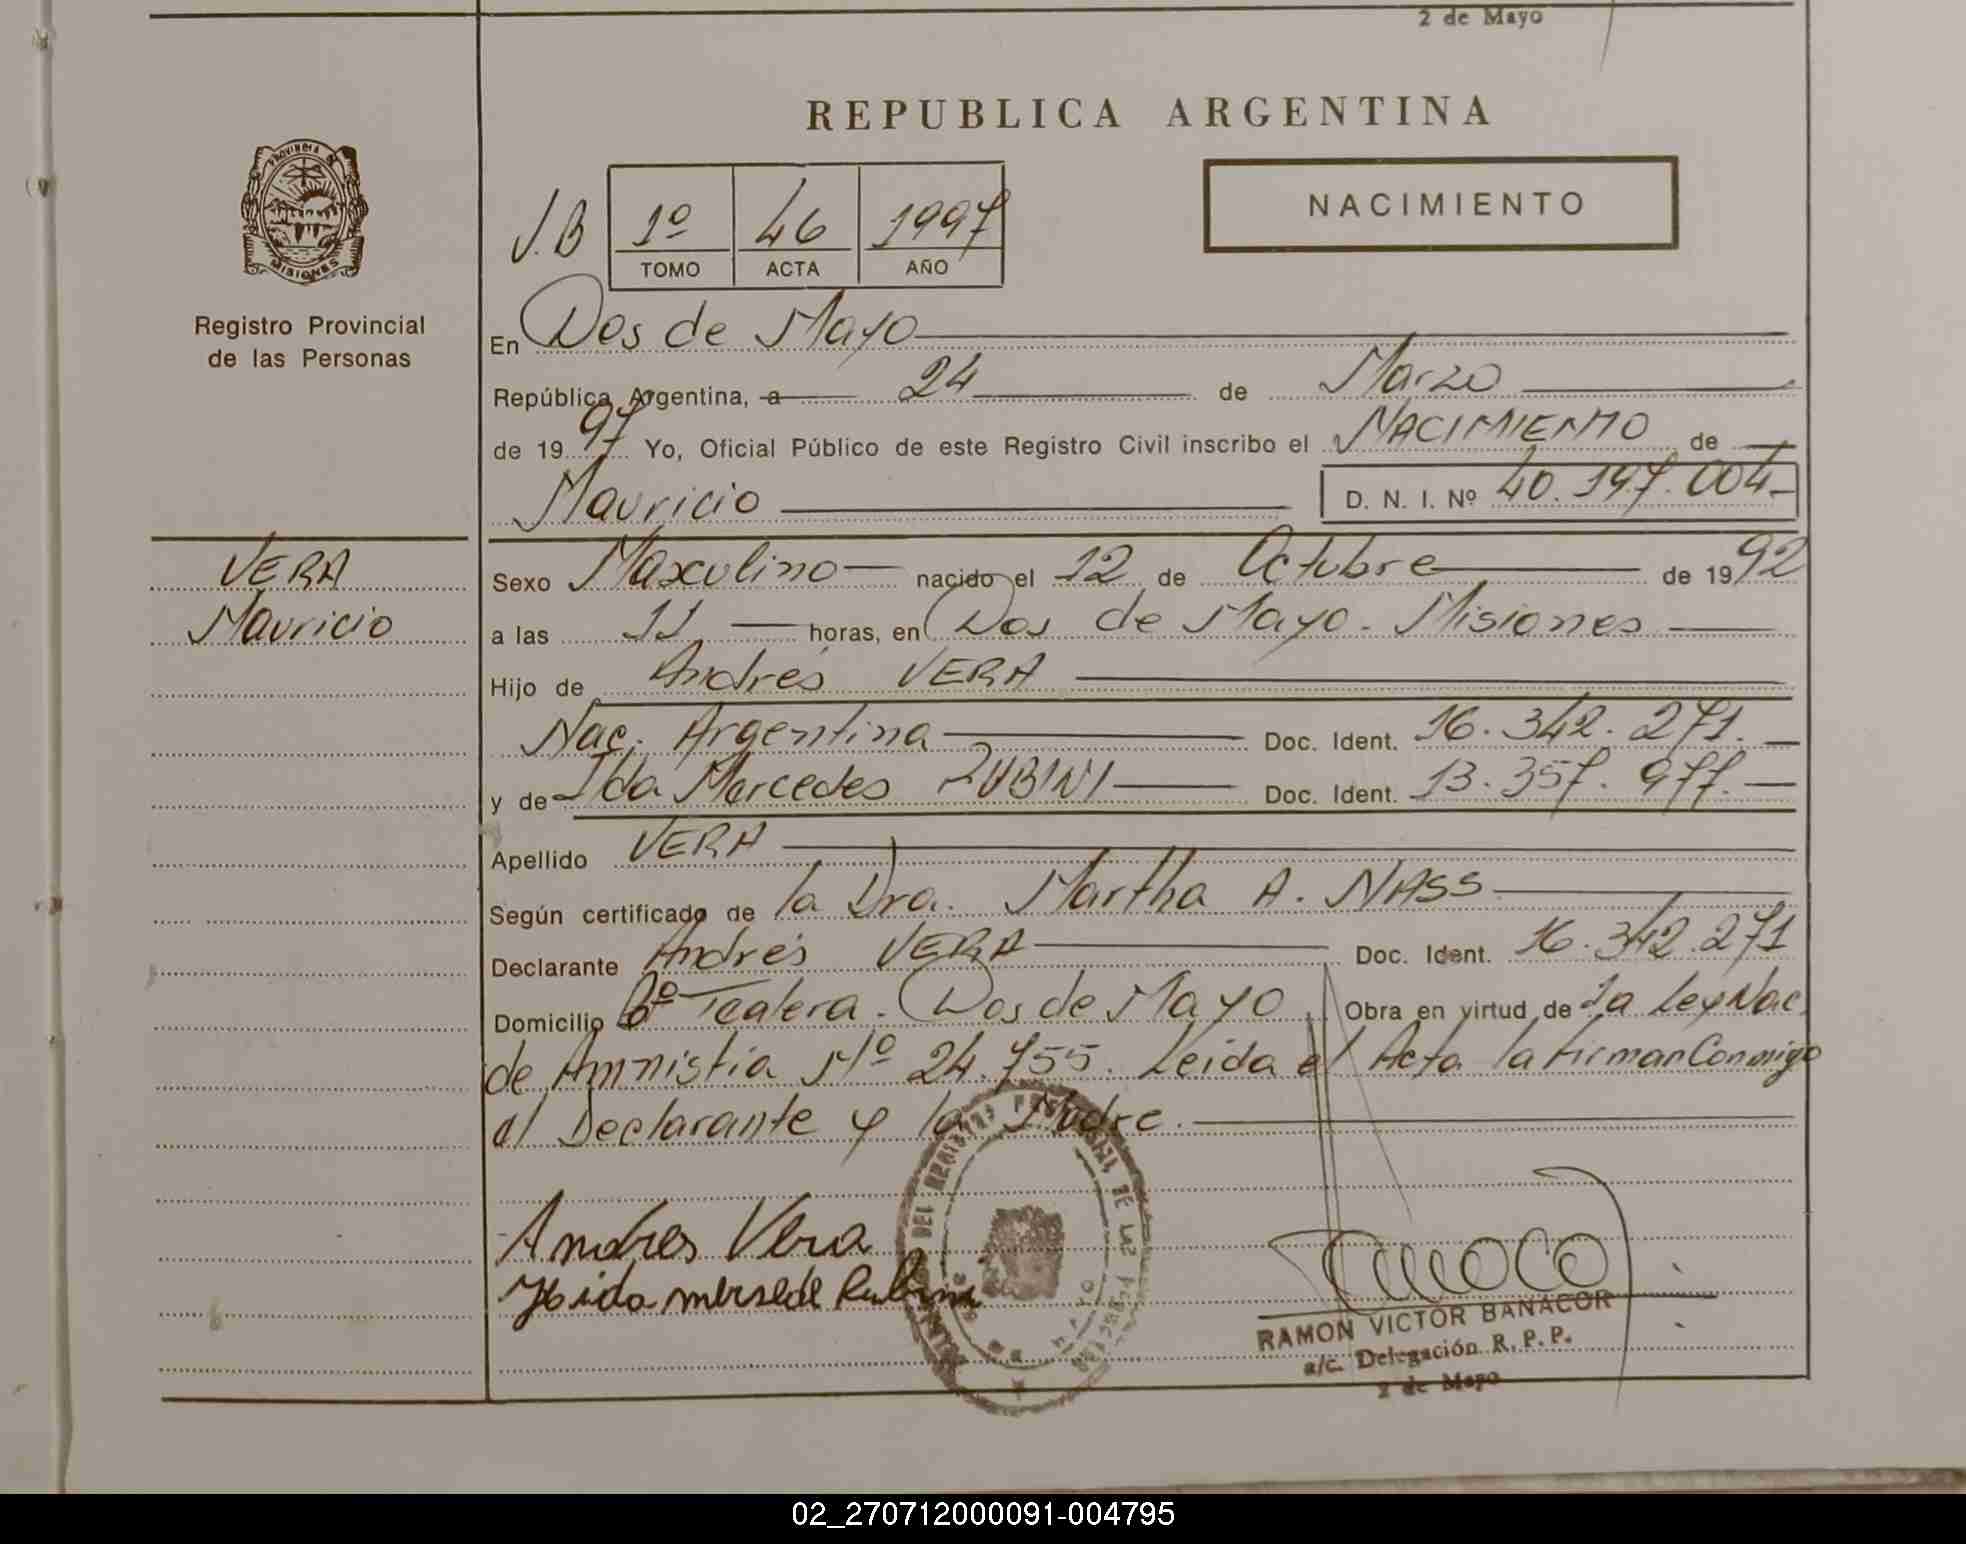 2 de Mayo
REPUBLICA ARGENTINA
PROVINCIA DE
MISIONES
Registro Provincial
de las Personas
J.B 1º 46 1997
TOMO ACTA AÑO
NACIMIENTO
En Dos de Mayo
República Argentina, a 24 de Marzo
de 1997 Yo, Oficial Público de este Registro Civil inscribo el NACIMIENTO de
Mauricio D. N. I. Nº 40.197.004
VERA
Mauricio
Sexo Masculino nacido el 12 de Octubre de 1992
a las 11 horas, en Dos de Mayo - Misiones
Hijo de Andrés VERA
Nac. Argentina Doc. Ident. 16.342.271.
y de Ida Mercedes RUBINI Doc. Ident. 13.357.977.
Apellido VERA
Según certificado de la Dra. Martha A. NASS
Declarante Andrés VERA Doc. Ident. 16.342.271
Domicilio Bº Tealera. Dos de Mayo Obra en virtud de la Ley Nac.
de Amnistia Nº 24.755. Leida el Acta la firman Conmigo
el Declarante y la Madre.
Andres Vera
mersede Rubini
RAMON VICTOR BANACOR
a/c. Delegación R. P. P.
2 de Mayo
02_270712000091-004795